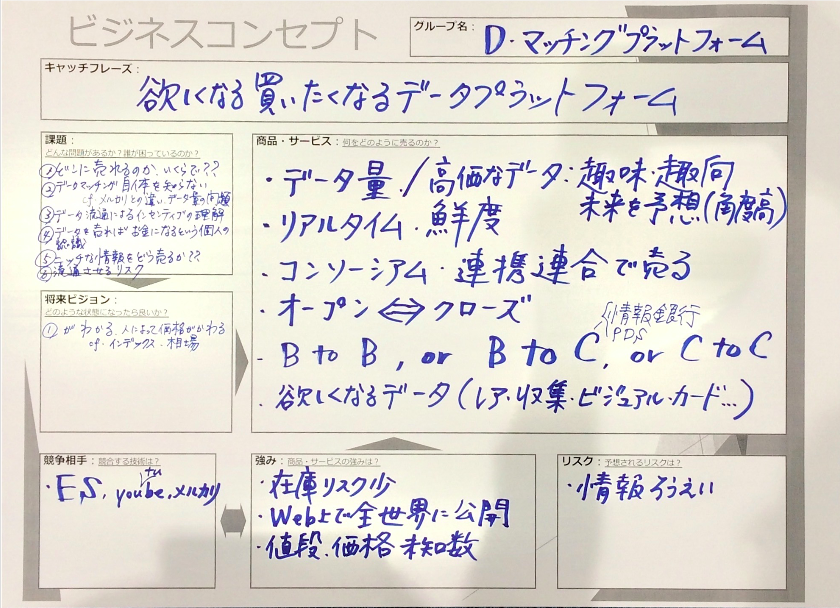 ビジネスコンセプト
グループ名：
D・マッチングプラットフォーム
キャッチフレーズ：
欲しくなる買いたくなるデータプラットフォーム
課題：
どんな問題があるか？誰が困っているのか？
①どこに売れるのか、いくらで??
②データマッチング自体を知らない
cf メルカリとの違い、データ量の問題
③データ流通によるインセンティブの理解
④データを売ればお金になるという個人の
⑤ニッチな情報をどう売るか??
⑥流通させるリスク
将来ビジョン：
どのような状態になったら良いか？
①がわかる、人によって価格がかわる
cf. インデックス・相場
商品・サービス：何をどのように売るのか？
・データ量／高価なデータ：趣味・趣向
未来を予想(角度高)
・リアルタイム・鮮度
・コンソーシアム・連携連合で売る
・オープン⇔クローズ
情報銀行
PDS
・B to B, or B to C, or C to C
・欲しくなるデータ(レア・収集・ビジュアル・カード…)
競争相手：競合する技術は？
・E,S, yoube, メルカリ
tu
強み：商品・サービスの強みは？
・在庫リスク少
・Web上で全世界に公開
・値段、価格 未知数
リスク：予想されるリスクは？
・情報ろうえい